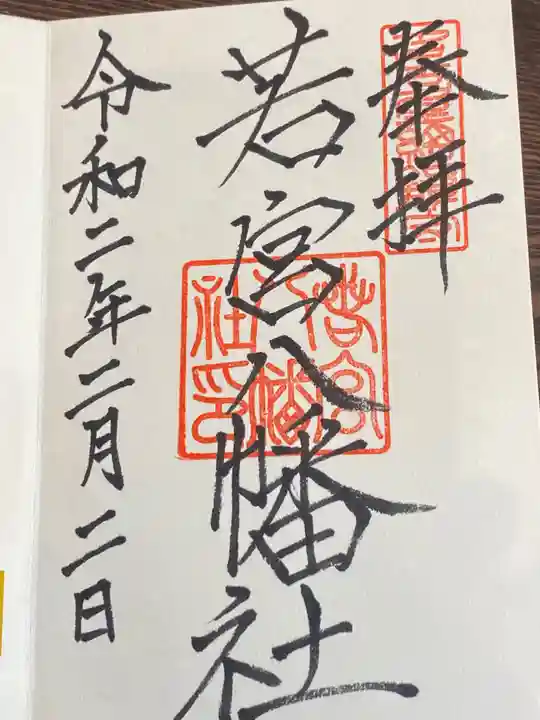 奉拝
若宮八幡社
若宮八幡社印
令和二年二月二日